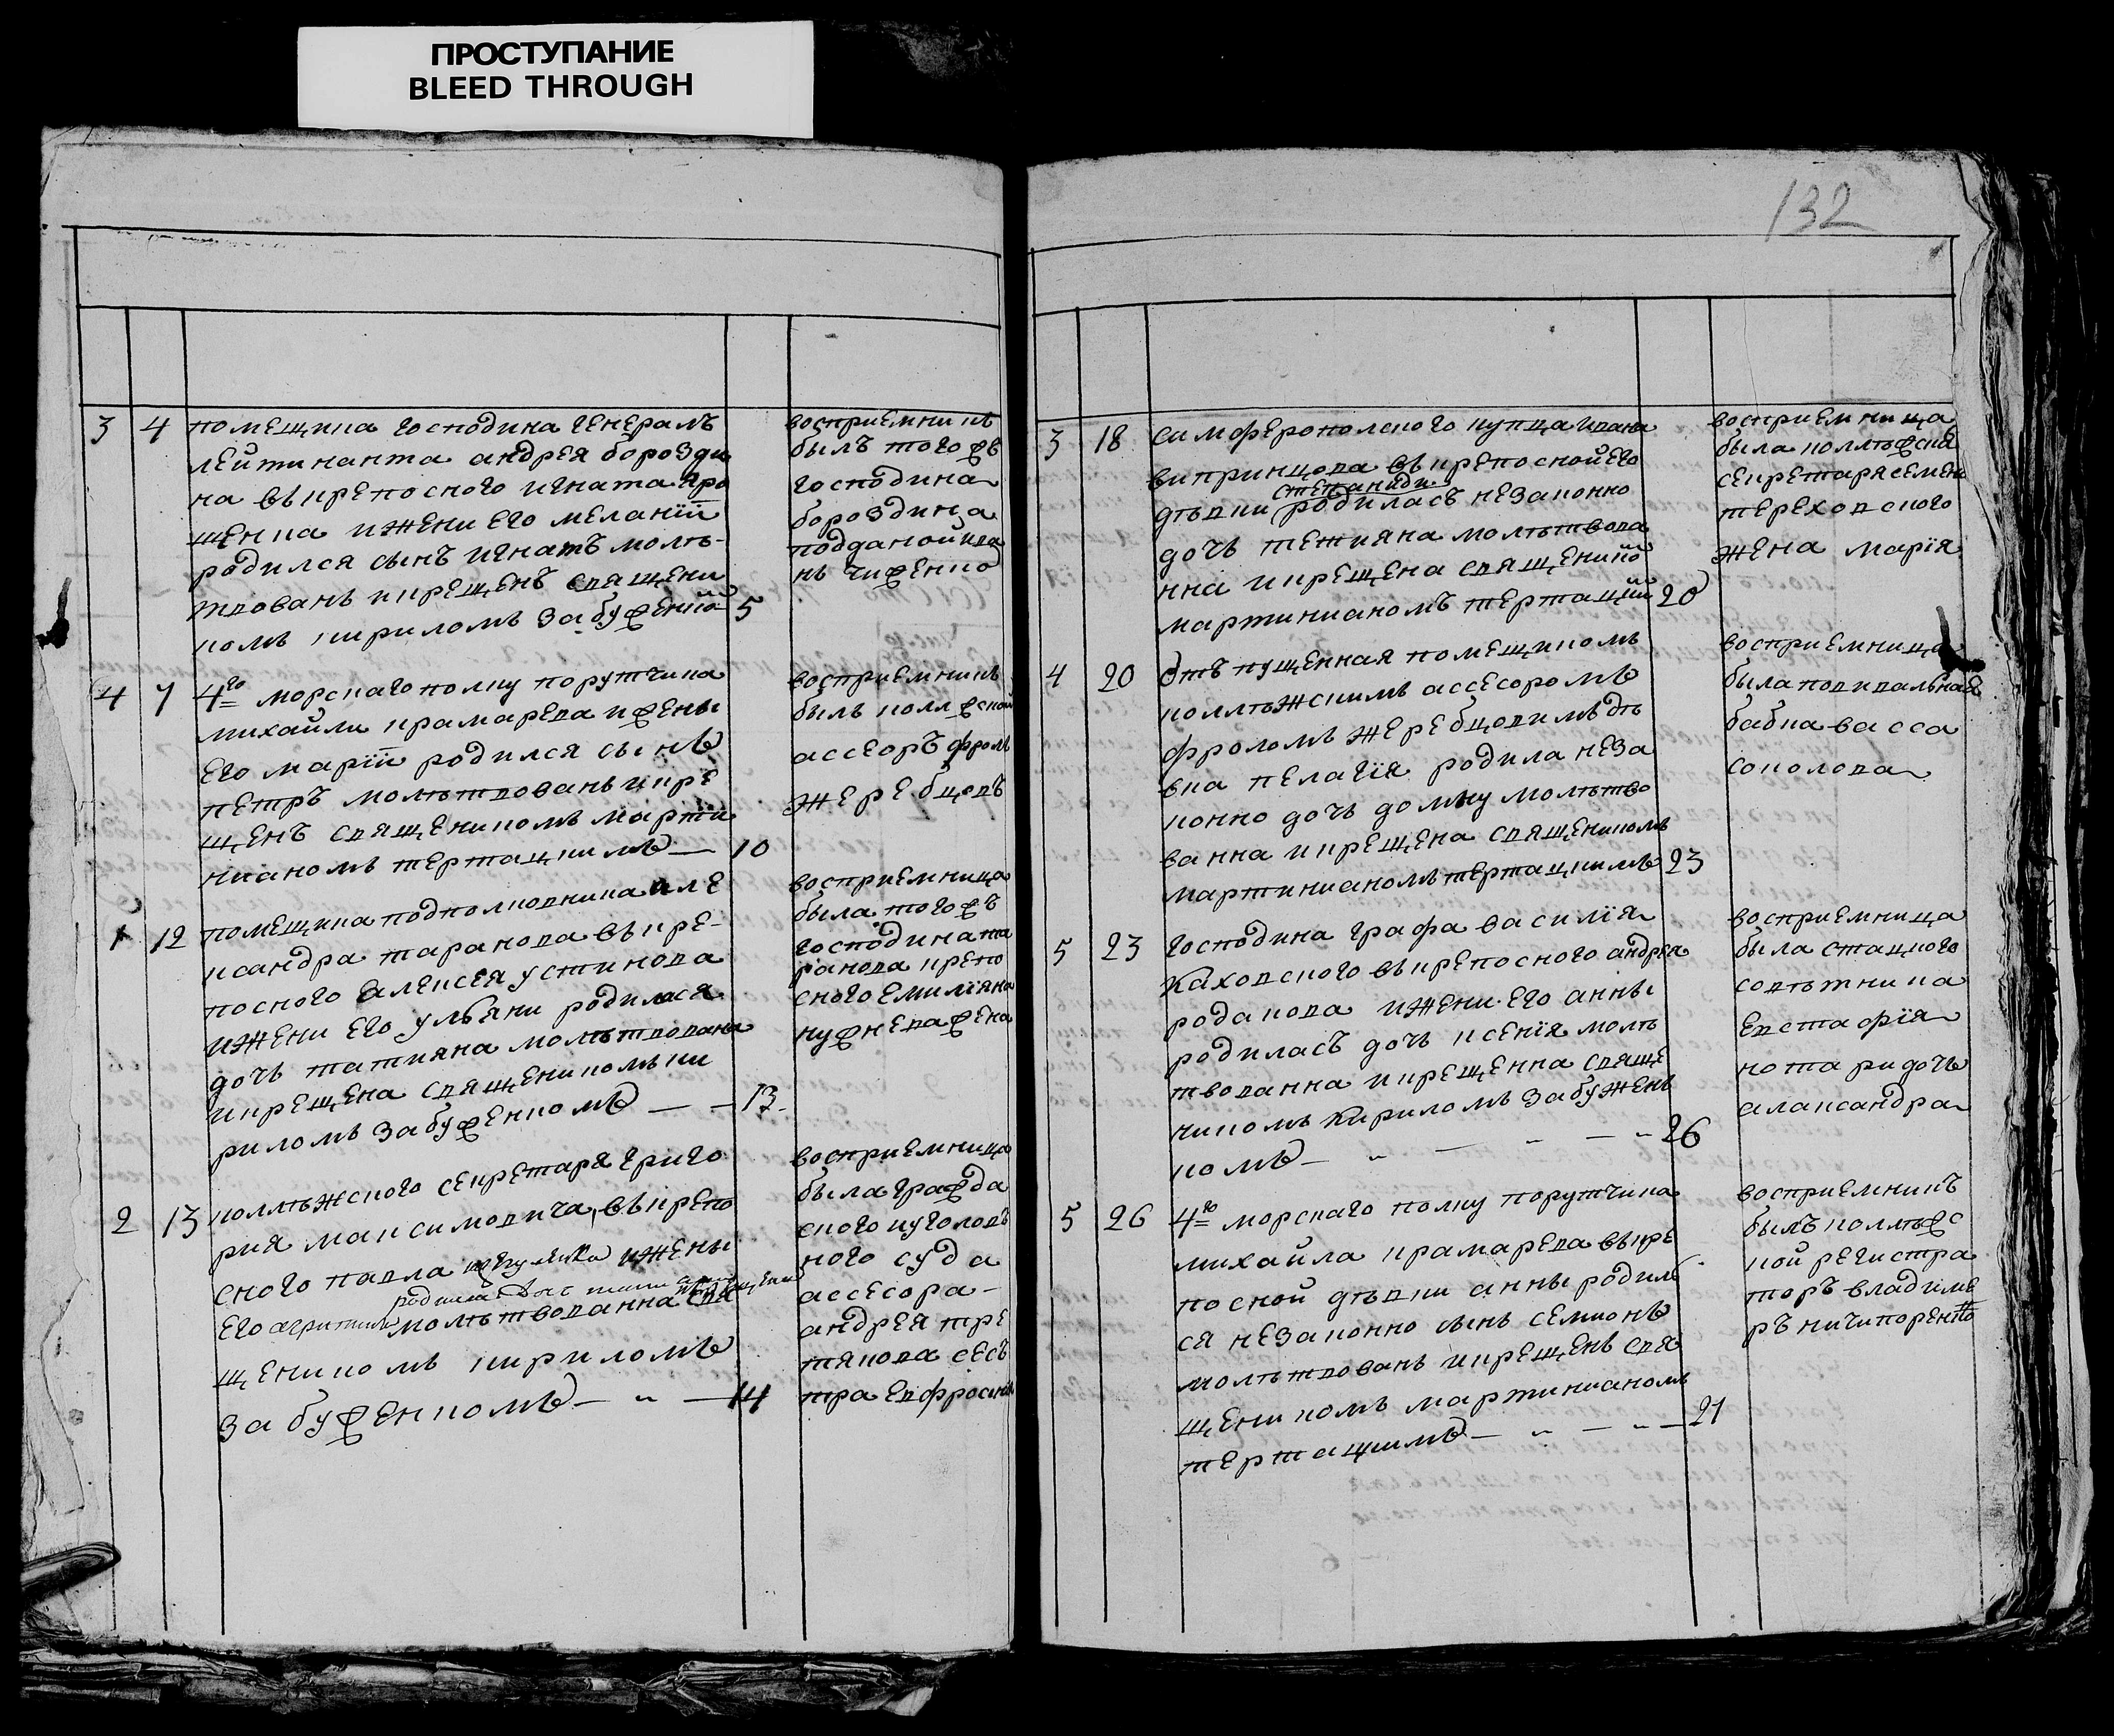 ПРОСТУПАНИЕ
BLEED THROUGH
3 4 помещика господина генералъ
лейтинанта андрея борозди
на въ крепосного игната яро
щенка и жени его меланїй
родился сынъ игнатъ моли-
твовань и крещенъ священи
комъ кириломъ забуженкой 5
восприемникъ
былъ того же
господина
бороздина
подданой ива
нь чиженко
4 7 4го морскаго полку порутчика
михайли крамарева и жены
его марїй родился сынъ
петръ молитвовань и кре
щенъ священикомъ марти
нианомъ тертацкимъ — 10
восприемникъ
быль коллежской
ассеоръ фролъ
жеребцовъ
1 12 помещика подполковника але
ксандра таранова въ кре-
посного алексея устинова
и жени его ульяни родилася
дочь татияна молитвована
и крещена священикомъ ки
риломъ забуженкомъ — — 13.
восприемница
была того жъ
господина та
ранова крепо
сного емилїяна
нужнева жена
2 13 коллѣжского секретаря григо
рия максимовича въ крепо
сного павла и жены
его молитвованна свя
щеникомъ кириломъ
забуженкомъ — „ — 14
восприемница
была гражда
ского и уголовъ
ного суда
ассесора -
андрея тре
тякова сес
тра евфросинія
132
3 18 симферополского купца ивана
випринцова въ крепосной его
стефаниди
дѣвки родиласъ незаконно
дочь тетияна молитвова
нна и крещена священико
мартинианомъ тертацкий 20
восприемница
была коллѣжска
секретаря семена
тереховского
жена марїя
4 20 отъ пущенная помещикомъ
коллѣжскимъ ассесоромъ
фроломъ жеребцовимъ дѣ
вка пелагїя родила неза
конно дочь домну молитво
ванна и крещена священикомъ
мартинианомъ тертацкимъ 23
восприемница
была повивальная
бабка васса
соколова
5 23 господина графа василїя
каховского въ крепосного андрея
родакова и жени его анны
родиласъ дочь ксенїя моли
твованна и крещенна свяще
никомъ кириломъ забужень
комъ — „ — „ — „ 26
восприемница
была статского
советника
евстафїя
нотари дочь
алаксандра
5 26 4го морскаго полку порутчика
михайла крамарева въ кре
посной дѣвки анны родил
ся незаконно сынъ семионъ
молитвовань и крещенъ свя
щеникомъ мартинианомъ
тертацкимъ — „ — „ — 27
восприемникъ
былъ коллѣжс
кой регистра
торъ владими
ръ ничипоренко